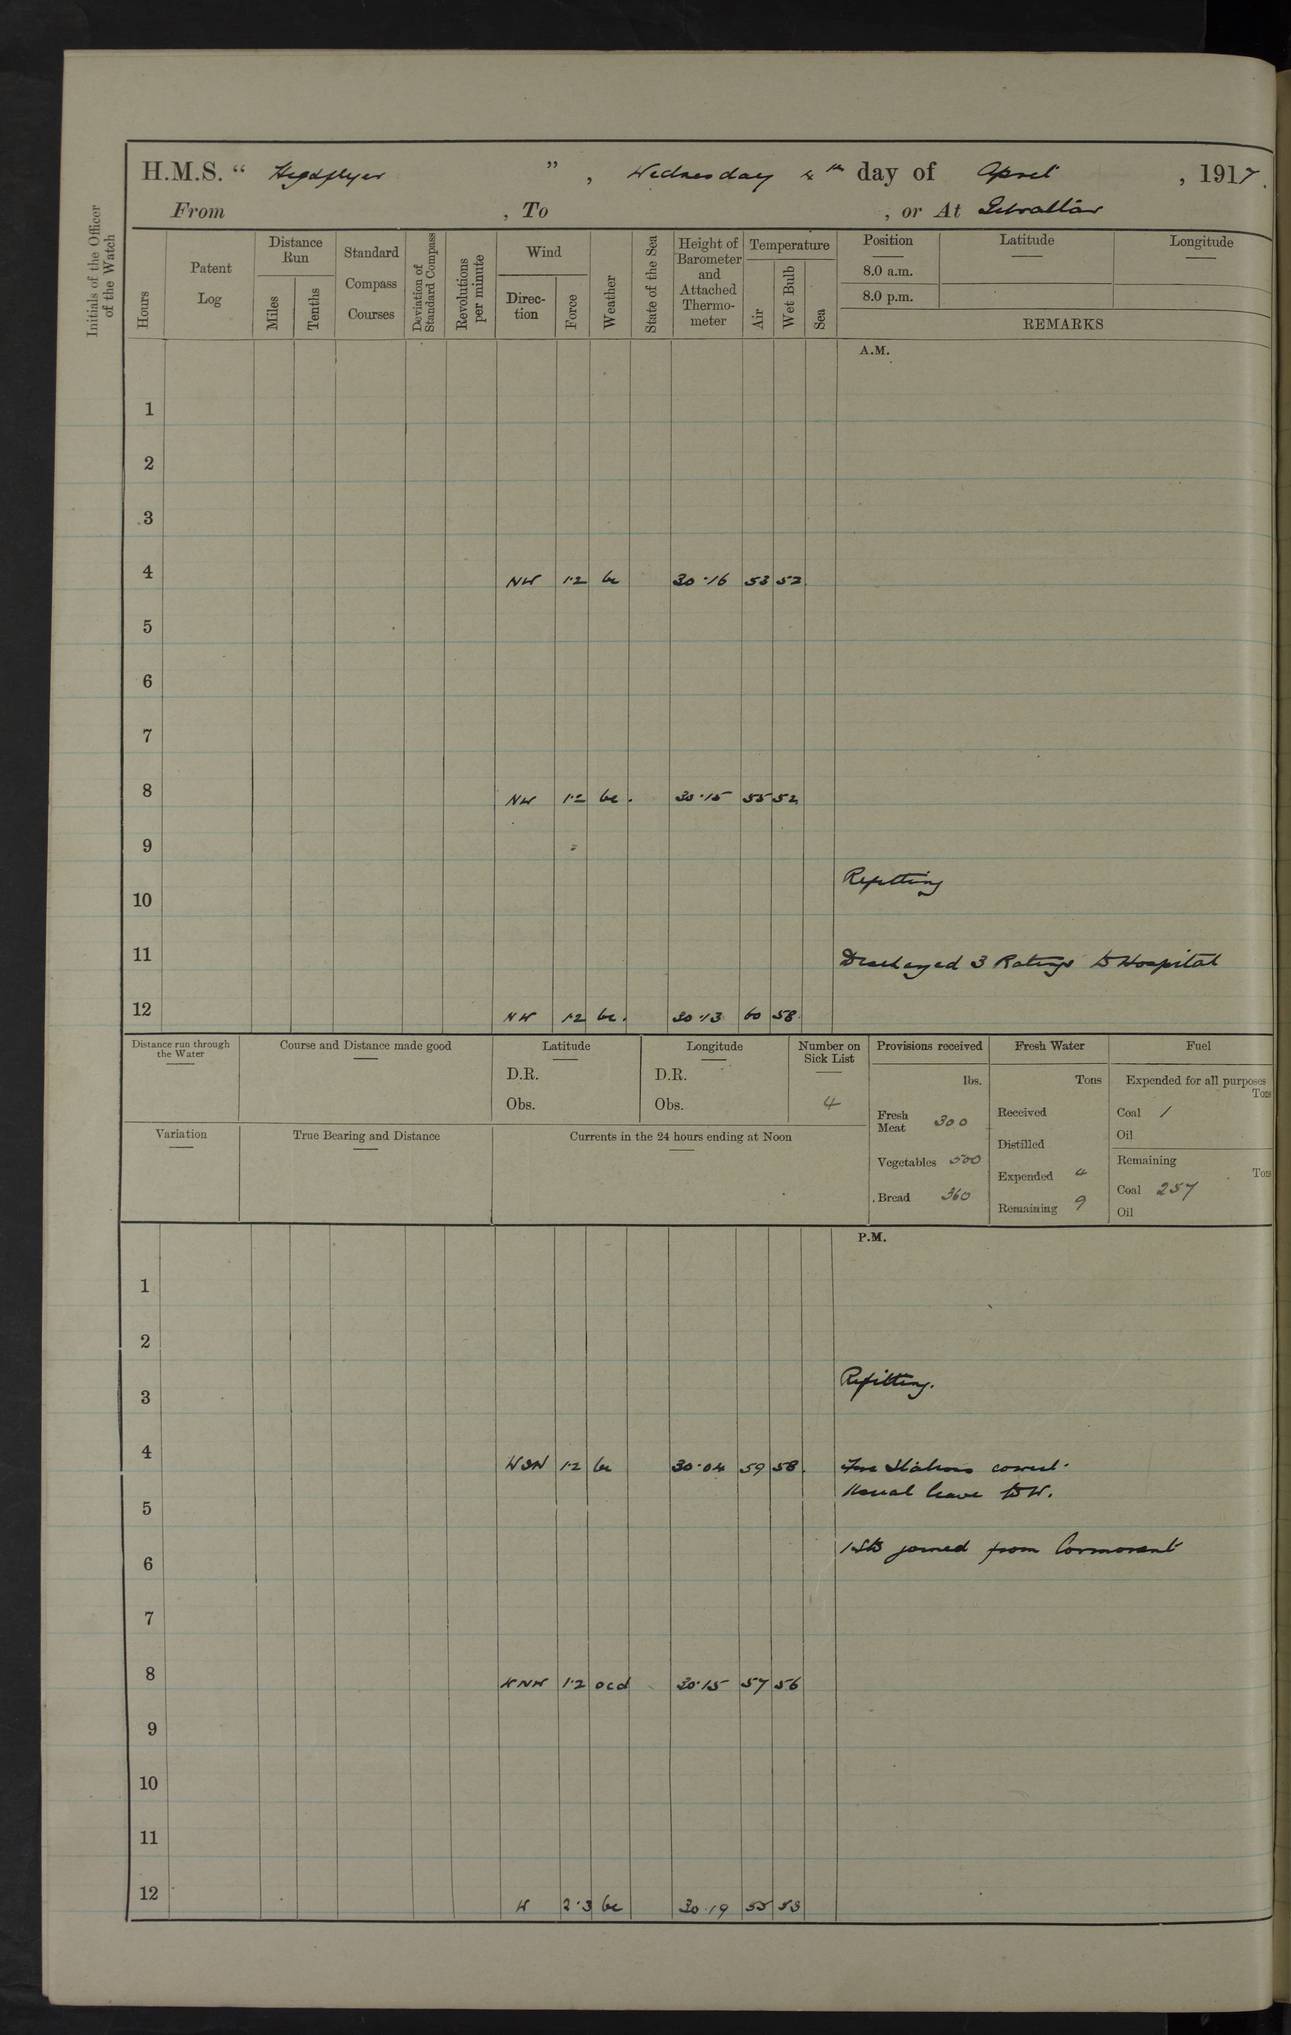 H.M.S. " Highflyer ", Wednesday 4th day of April, 1917.
From , To , or At Gibraltar
Initials of the Officer of the Watch
Hours
Patent Log
Distance Run
Miles
Tenths
Standard Compass Courses
Deviation of Standard Compass
Revolutions per minute
Wind
Direc-tion
Force
Weather
State of the Sea
Height of Barometer and Attached Thermo-meter
Temperature
Air
Wet Bulb
Sea
Position
8.0 a.m.
8.0 p.m.
Latitude
Longitude
REMARKS
A.M.
1
2
3
4 NW 1·2 bc 30·16 53 52
5
6
7
8 NW 1·2 bc. 30·15 55 52
9
Refitting
10
11 Discharged 3 Ratings to Hospital
12 NW 1·2 bc. 30·13 60 58
Distance run through the Water
Course and Distance made good
Latitude
D.R.
Obs.
Longitude
D.R.
Obs.
Number on Sick List
4
Provisions received
lbs.
Fresh Meat 300
Vegetables 500
Bread 360
Fresh Water
Tons
Received
Distilled
Expended 4
Remaining 9
Fuel
Expended for all purposes
Tons
Coal 1
Oil
Remaining
Tons
Coal 257
Oil
Variation
True Bearing and Distance
Currents in the 24 hours ending at Noon
P.M.
1
2
3 Refitting.
4 WSW 1·2 bc 30·04 59 58 Fire Stations correct.
Usual leave to W.
5
6 joined from Cormorant
7
8 WNW 1·2 ocd 30·15 57 56
9
10
11
12 W 2·3 bc 30·19 55 53